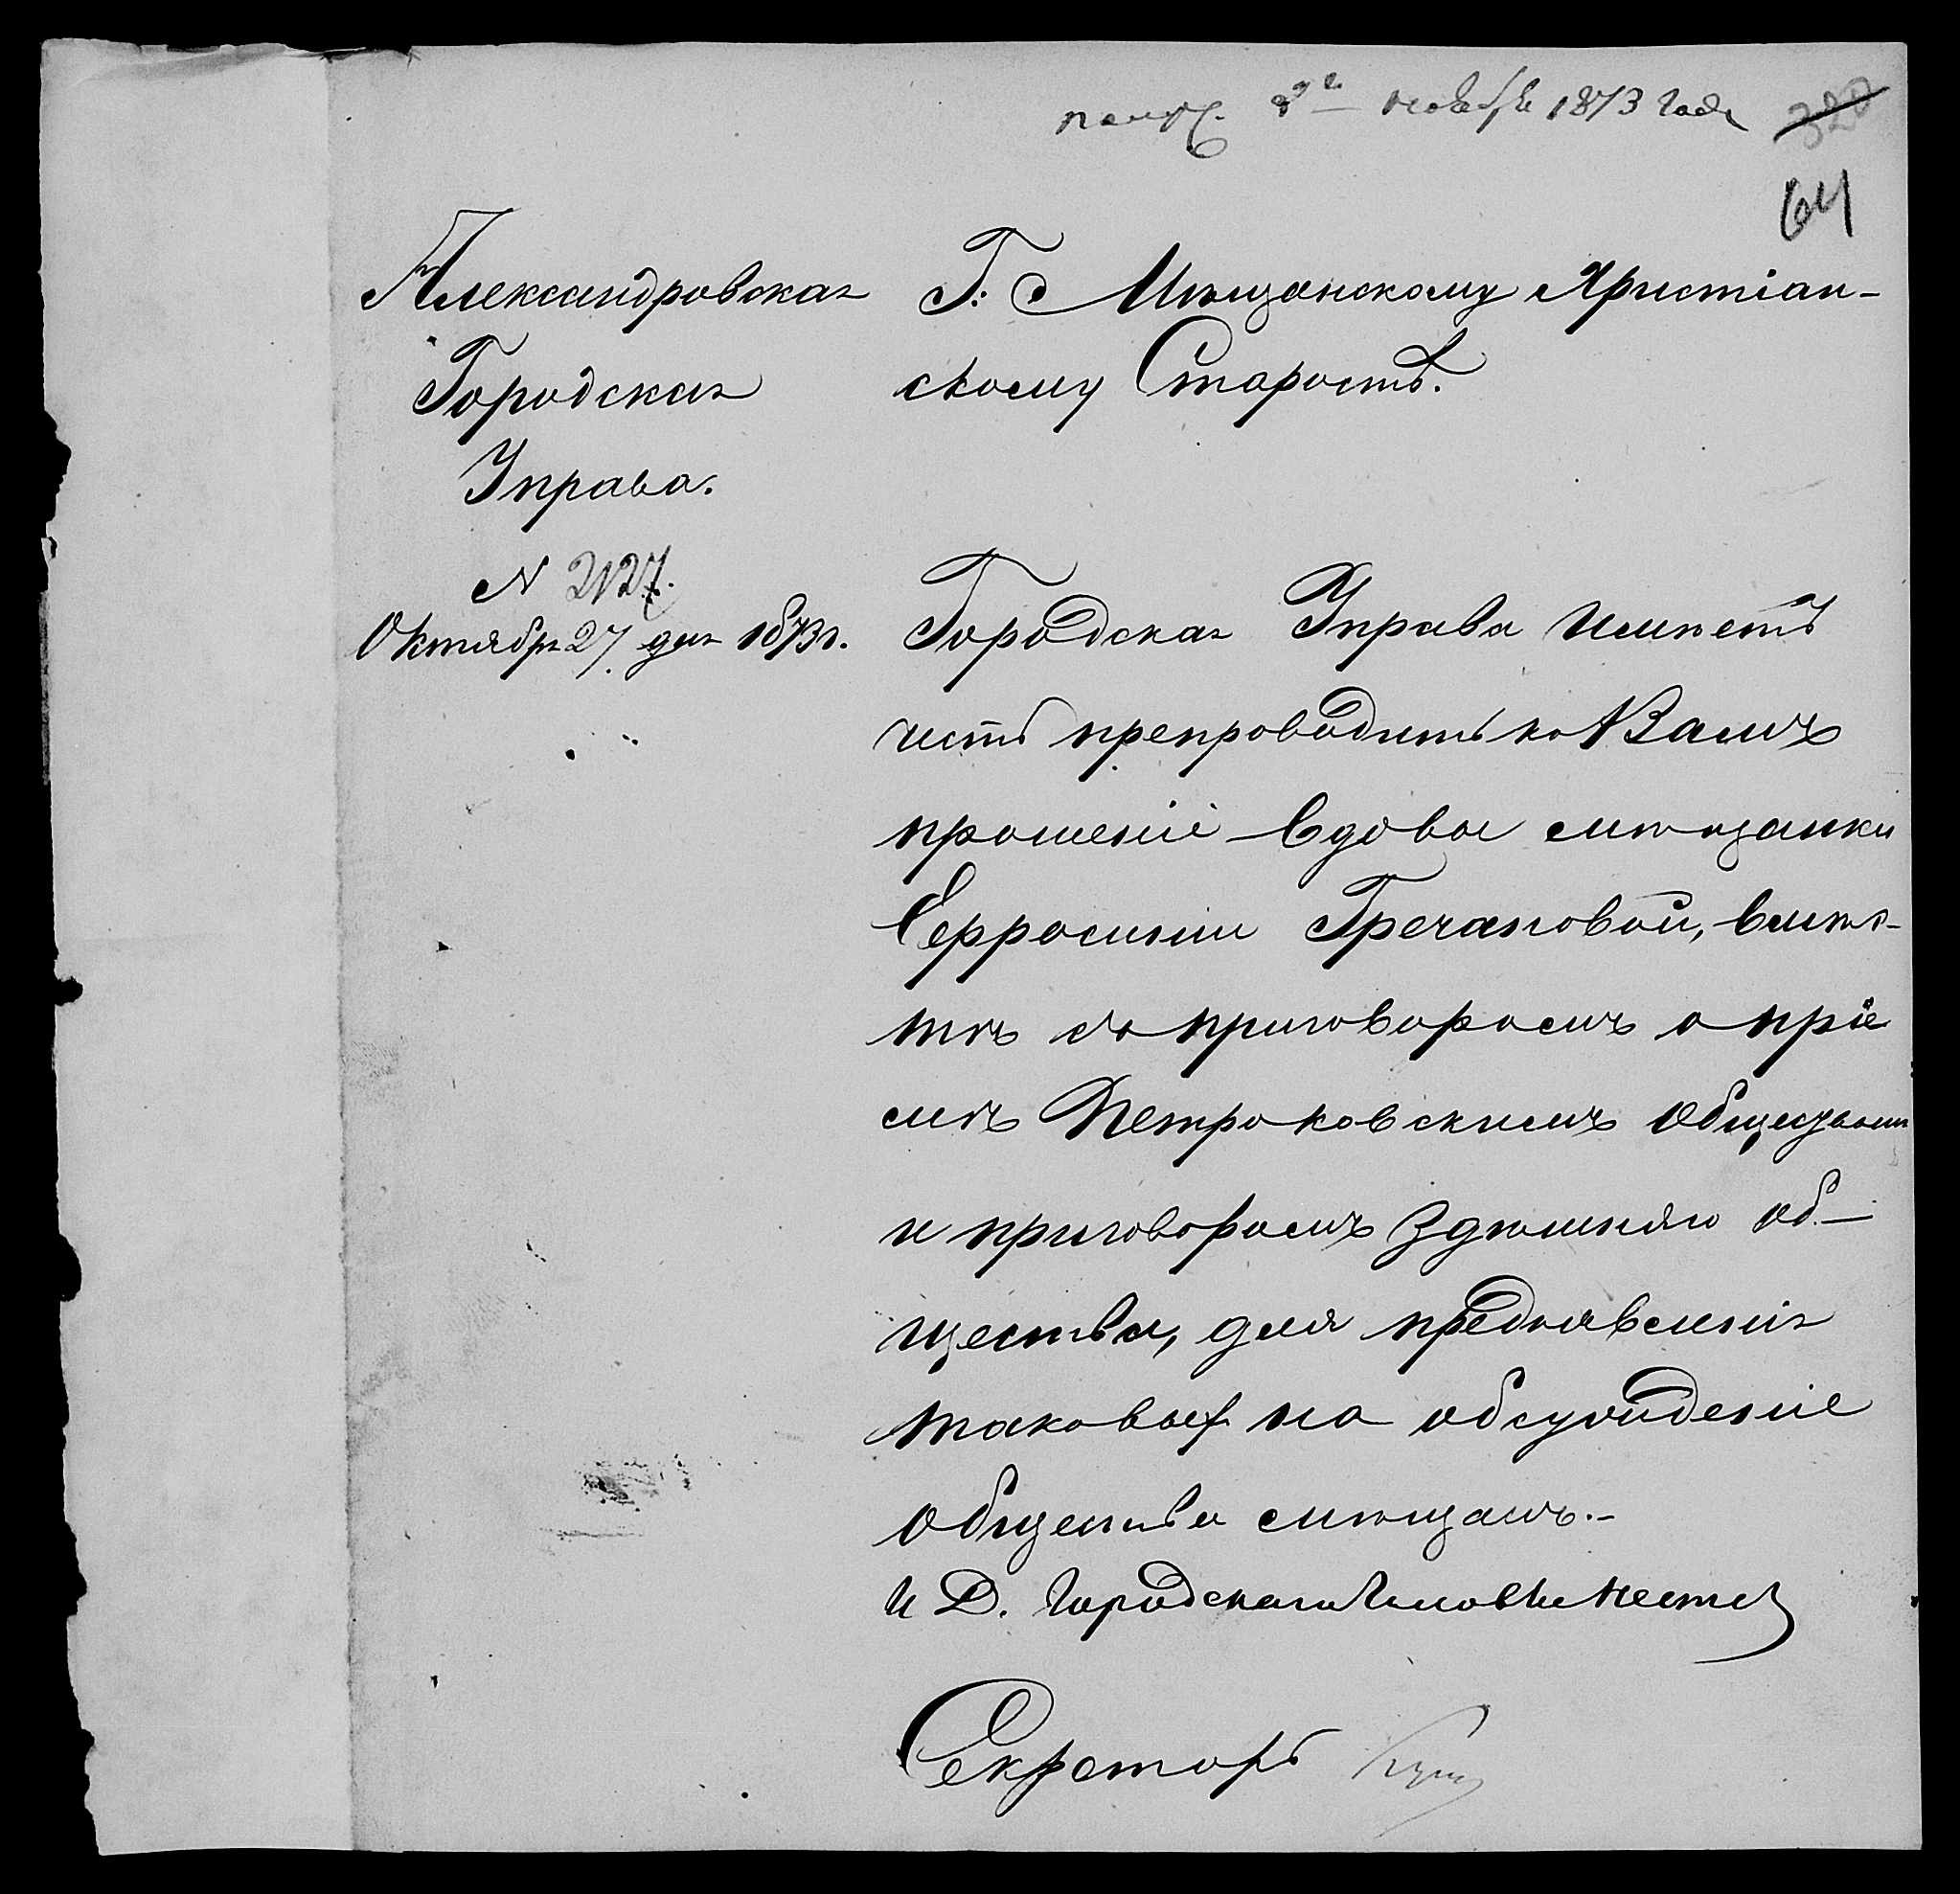 получ. 2го ноября 1873 года
320
64
Александровская
Городская
Управа.
N 2127.
Октября 27 дня 1873 г.
Г. Мѣщанскому Христіан-
скому Старостѣ.
Городская Управа имѣетъ
честь препроводить къ Вамъ
прошеніе вдовы мѣщанки
Ефросиніи Гречановой, вмѣс-
тѣ съ приговоромъ о пріе
мѣ Петроковскимъ обществом
и приговоромъ здѣшняго об-
щества, для предъявленія
таковых на обсужденіе
общества мѣщанъ.-
И Д. Городскаго Головы
Секретарь